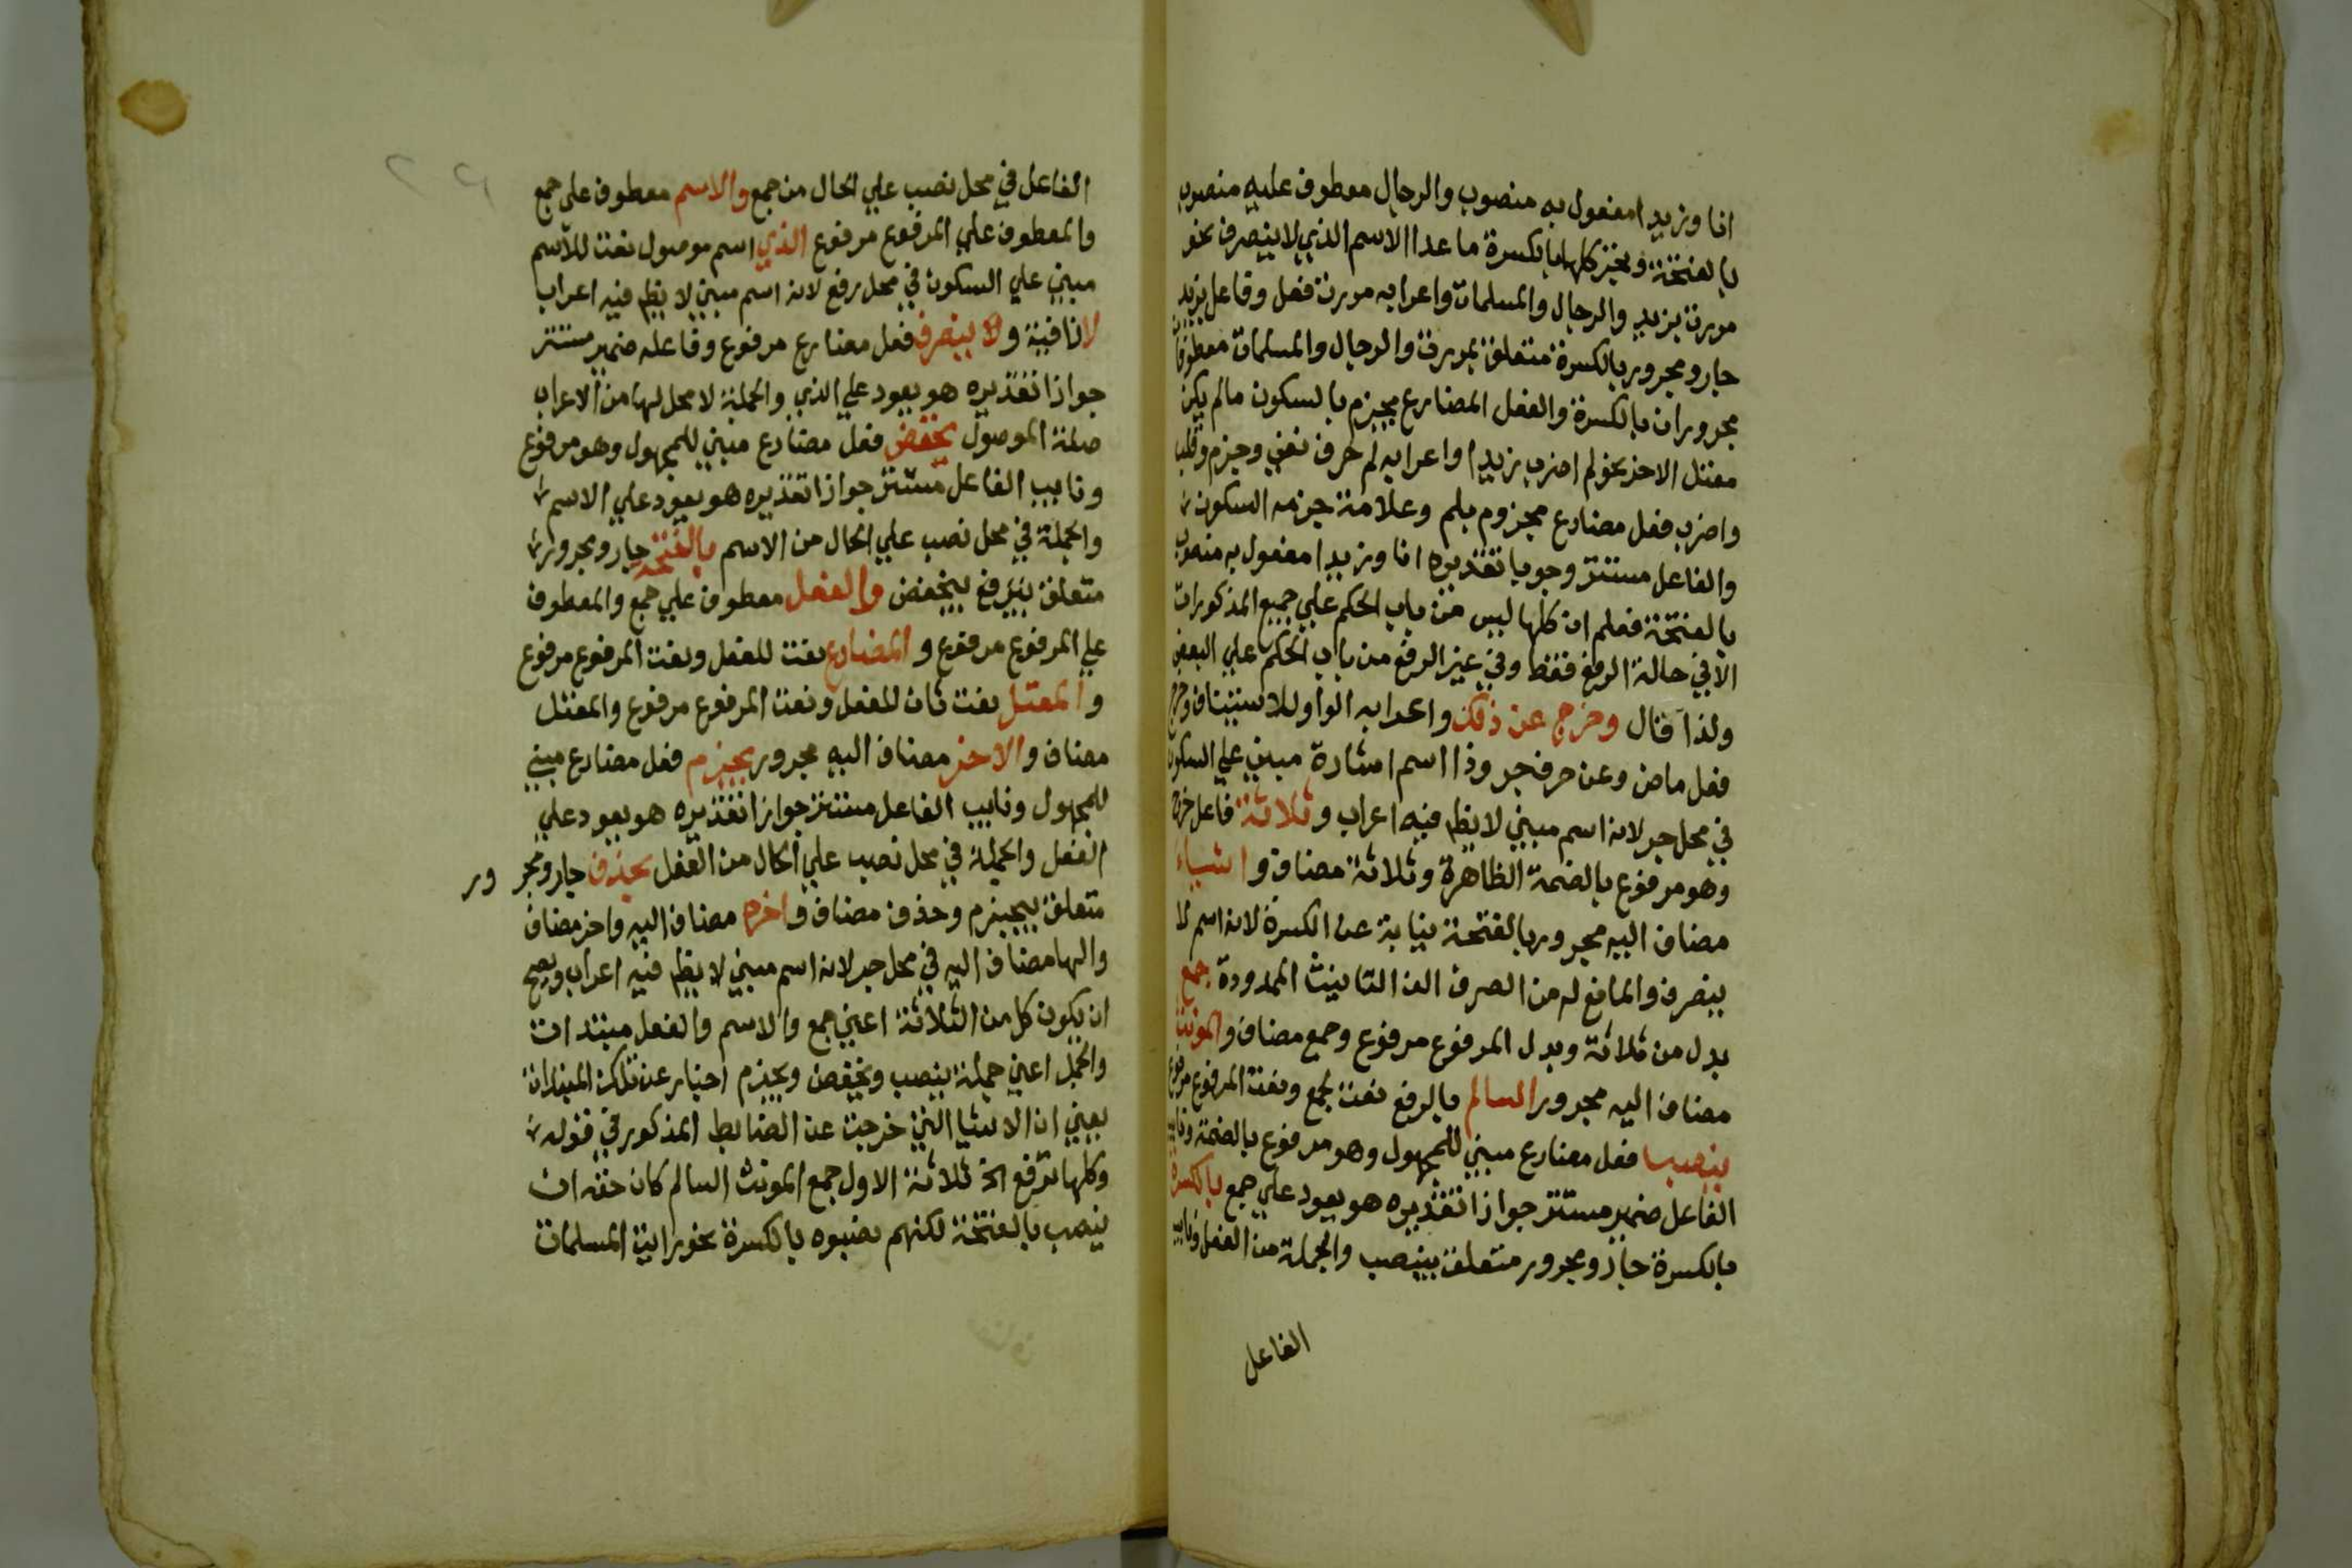 انا وزيدا مفعول به منصوب والرجال معطوف عليه منصوب
بالفتحة وتخفض كلها بالكسرة ما عدا الاسم الذي لا ينصرف نحو
مررت بزيد والرجال والمسلمات واعرابه مررت فعل وفاعل بزيد
جار ومجرور بالكسرة متعلق بمررت والرجال والمسلمات معطوفان
مجروران بالكسرة والفعل المضارع يجزم بالسكون مالم يكن
معتل الاخر نحو لم اضرب زيدا واعرابه لم حرف نفي وجزم وقلب
واضرب فعل مضارع مجزوم بلم وعلامة جزمه السكون
والفاعل مستتر وجوبا تقديره انا وزيدا مفعول به منصوب
بالفتحة فعلم ان كلها ليس من باب الحكم علي جميع المذكورات
الا في حالة الرفع فقط وفي غير الرفع من باب الحكم علي البعض
ولذا قال وخرج عن ذلك واعرابه الواو للاستيناف وخرج
فعل ماض وعن حرف جر وذا اسم اشارة مبني علي السكون
في محل جر لانه اسم مبني لا يظهر فيه اعراب وثلاثة فاعل خرج
وهو مرفوع بالضمة الظاهرة وثلاثة مضاف واشياء
مضاف اليه مجرور بالفتحة نيابة عن الكسرة لانه اسم لا
ينصرف والمانع له من الصرف الف التانيث الممدودة جمع
بدل من ثلاثة وبدل المرفوع مرفوع وجمع مضاف والمونث
مضاف اليه مجرور السالم بالرفع نعت لجمع ونعت المرفوع مرفوع
ينصب فعل مضارع مبني للمجهول وهو مرفوع بالضمة ونايب
الفاعل ضمير مستتر جوازا تقديره هو يعود علي جمع بالكسرة
بالكسرة جار ومجرور متعلق بينصب والجملة من الفعل ونايب
الفاعل
الفاعل في محل نصب علي الحال من جمع والاسم معطوف علي جمع
والمعطوف علي المرفوع مرفوع الذي اسم موصول نعت للاسم
مبني علي السكون في محل رفع لانه اسم مبني لا يظهر فيه اعراب
لا نافية ولا ينصرف فعل مضارع مرفوع وفاعله ضمير مستتر
جوازا تقديره هو يعود علي الذي والجملة لا محل لها من الاعراب
صلة الموصول يخفض فعل مضارع مبني للمجهول وهو مرفوع
ونايب الفاعل مستتر جوازا تقديره هو يعود علي الاسم
والجملة في محل نصب علي الحال من الاسم بالفتحة جار ومجرور
متعلق بيخفض والفعل معطوف علي جمع والمعطوف
علي المرفوع مرفوع والمضارع نعت للفعل ونعت المرفوع مرفوع
والمعتل نعت ثان للفعل ونعت المرفوع مرفوع والمعتل
مضاف والاخر مضاف اليه مجرور يجزم فعل مضارع مبني
للمجهول ونايب الفاعل مستتر جوازا تقديره هو يعود علي
الفعل والجملة في محل نصب علي الحال من الفعل بحذف جار ومجرور
متعلق بيجزم وحذف مضاف واخره مضاف اليه واخر مضاف
والها مضاف اليه في محل جر لانه اسم مبني لا يظهر فيه اعراب ويصح
ان يكون كل من الثلاثة اعني جمع والاسم والفعل مبتدات
والجمل اعني جملة ينصب ويخفض ويجزم اخبار عن تلك المبتدات
يعني ان الاشيا التي خرجت عن الضابط المذكور في قوله
وكلها ترفع الخ ثلاثة الاول جمع المونث السالم كان حقه ان
ينصب بالفتحة لكنهم نصبوه بالكسرة نحو رايت المسلمات